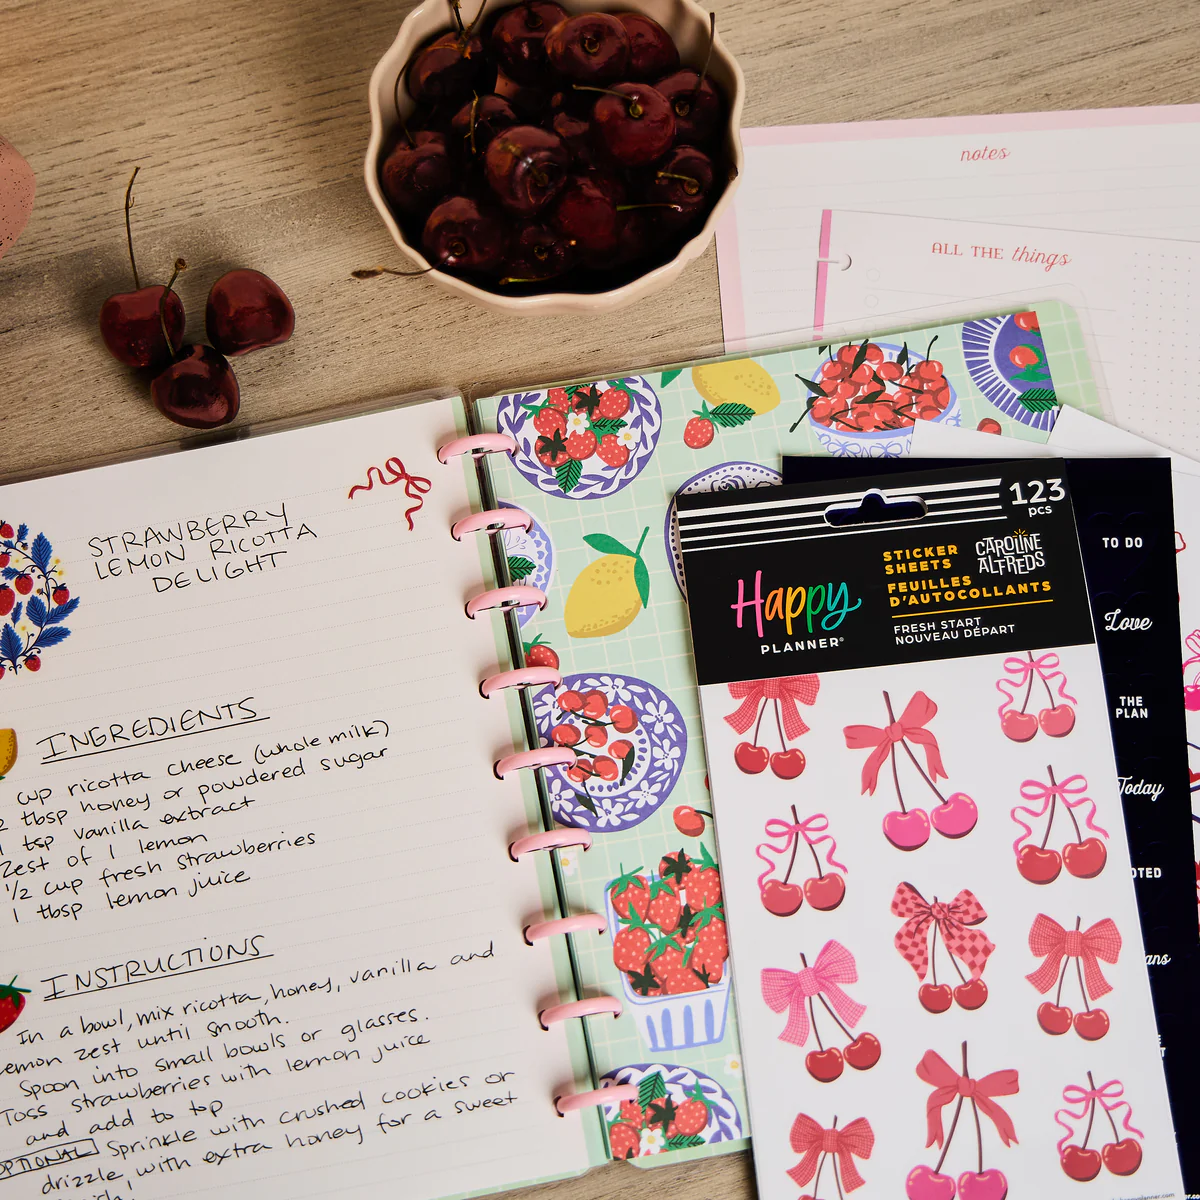 notes
ALL THE things
STRAWBERRY
LEMON RICOTTA
DELIGHT
INGREDIENTS
cup ricotta cheese (whole milk)
2 tbsp honey or powdered sugar
1 tsp vanilla extract
Zest of 1 lemon
1/2 cup fresh strawberries
1 tbsp lemon juice
INSTRUCTIONS
In a bowl, mix ricotta, honey, vanilla and
lemon zest until smooth.
Spoon into small bowls or glasses.
Toss strawberries with lemon juice
and add to top
OPTIONAL Sprinkle with crushed cookies or
drizzle, with extra honey for a sweet
123
pcs
STICKER
SHEETS
CAROLINE
ALFREDS
FEUILLES
D'AUTOCOLLANTS
Happy
PLANNER®
FRESH START
NOUVEAU DÉPART
TO DO
Love
THE
PLAN
Today